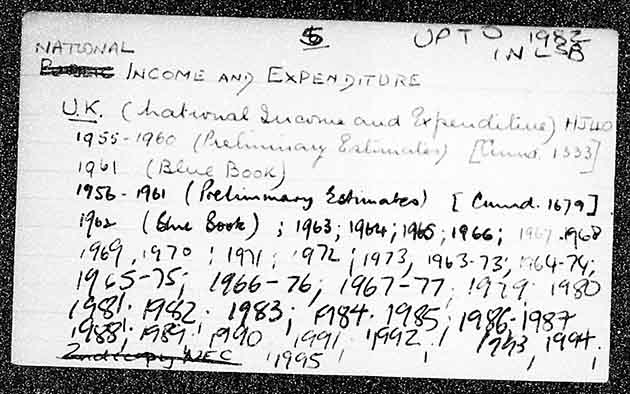 S UP TO 1982
NATIONAL IN LSB
Public INCOME AND EXPENDITURE
U.K. (National Income and Expenditure) HJ40
1955-1960 (Preliminary Estimates) [Cmnd. 1333]
1961 (Blue Book)
1956-1961 (Preliminary Estimates) [Cmnd. 1679]
1962 (Blue Book); 1963; 1964; 1965; 1966; 1967, 1968
1969, 1970; 1971; 1972; 1973, 1963-73; 1964-74;
1965-75; 1966-76; 1967-77; 1979; 1980
1981. 1982. 1983; 1984. 1985; 1986-1987
1988; 1989; 1990 1991 1992; 1993, 1994.
2nd copy NFC 1995